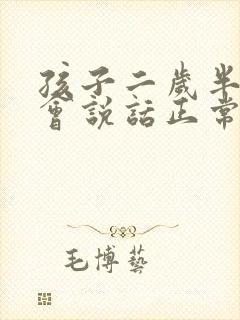 孩子二歲半
會説話正常
毛博藝